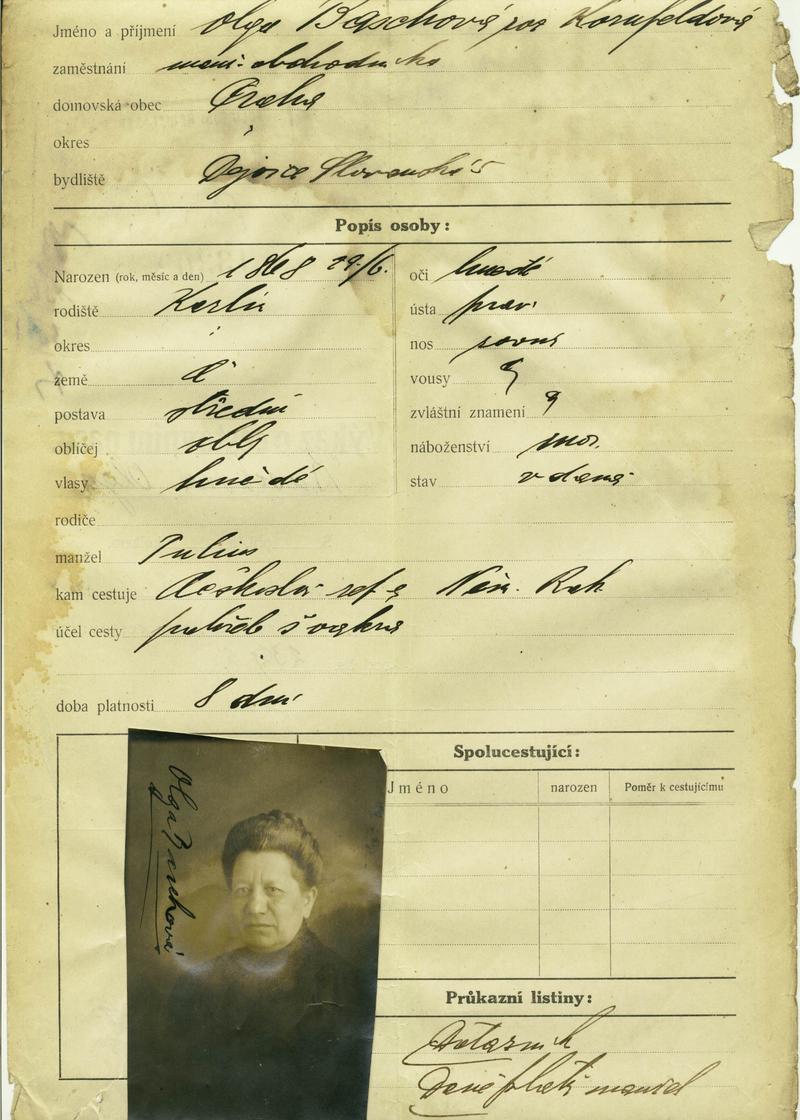 Jméno a příjmení Olga Baschová roz Kornfeldová
zaměstnání manž. obchodníka
domovská obec Praha
okres
bydliště Dejvice
Popis osoby:
Narozen (rok, měsíc a den) 1868 29/6.
rodiště Karlín
okres
země Č
postava střední
obličej oblý
vlasy hnědé
oči hnedé
ústa prav.
nos rovný
vousy
zvláštní znamení
náboženství
stav vdaná
rodiče
manžel Julius
kam cestuje Českoslov. rep a Něm. Rak
účel cesty pohřeb švakra
doba platnosti 8 dní
Olga Baschová
Spolucestující:
Jméno narozen Poměr k cestujícímu
Průkazní listiny:
Dotazník
manžel